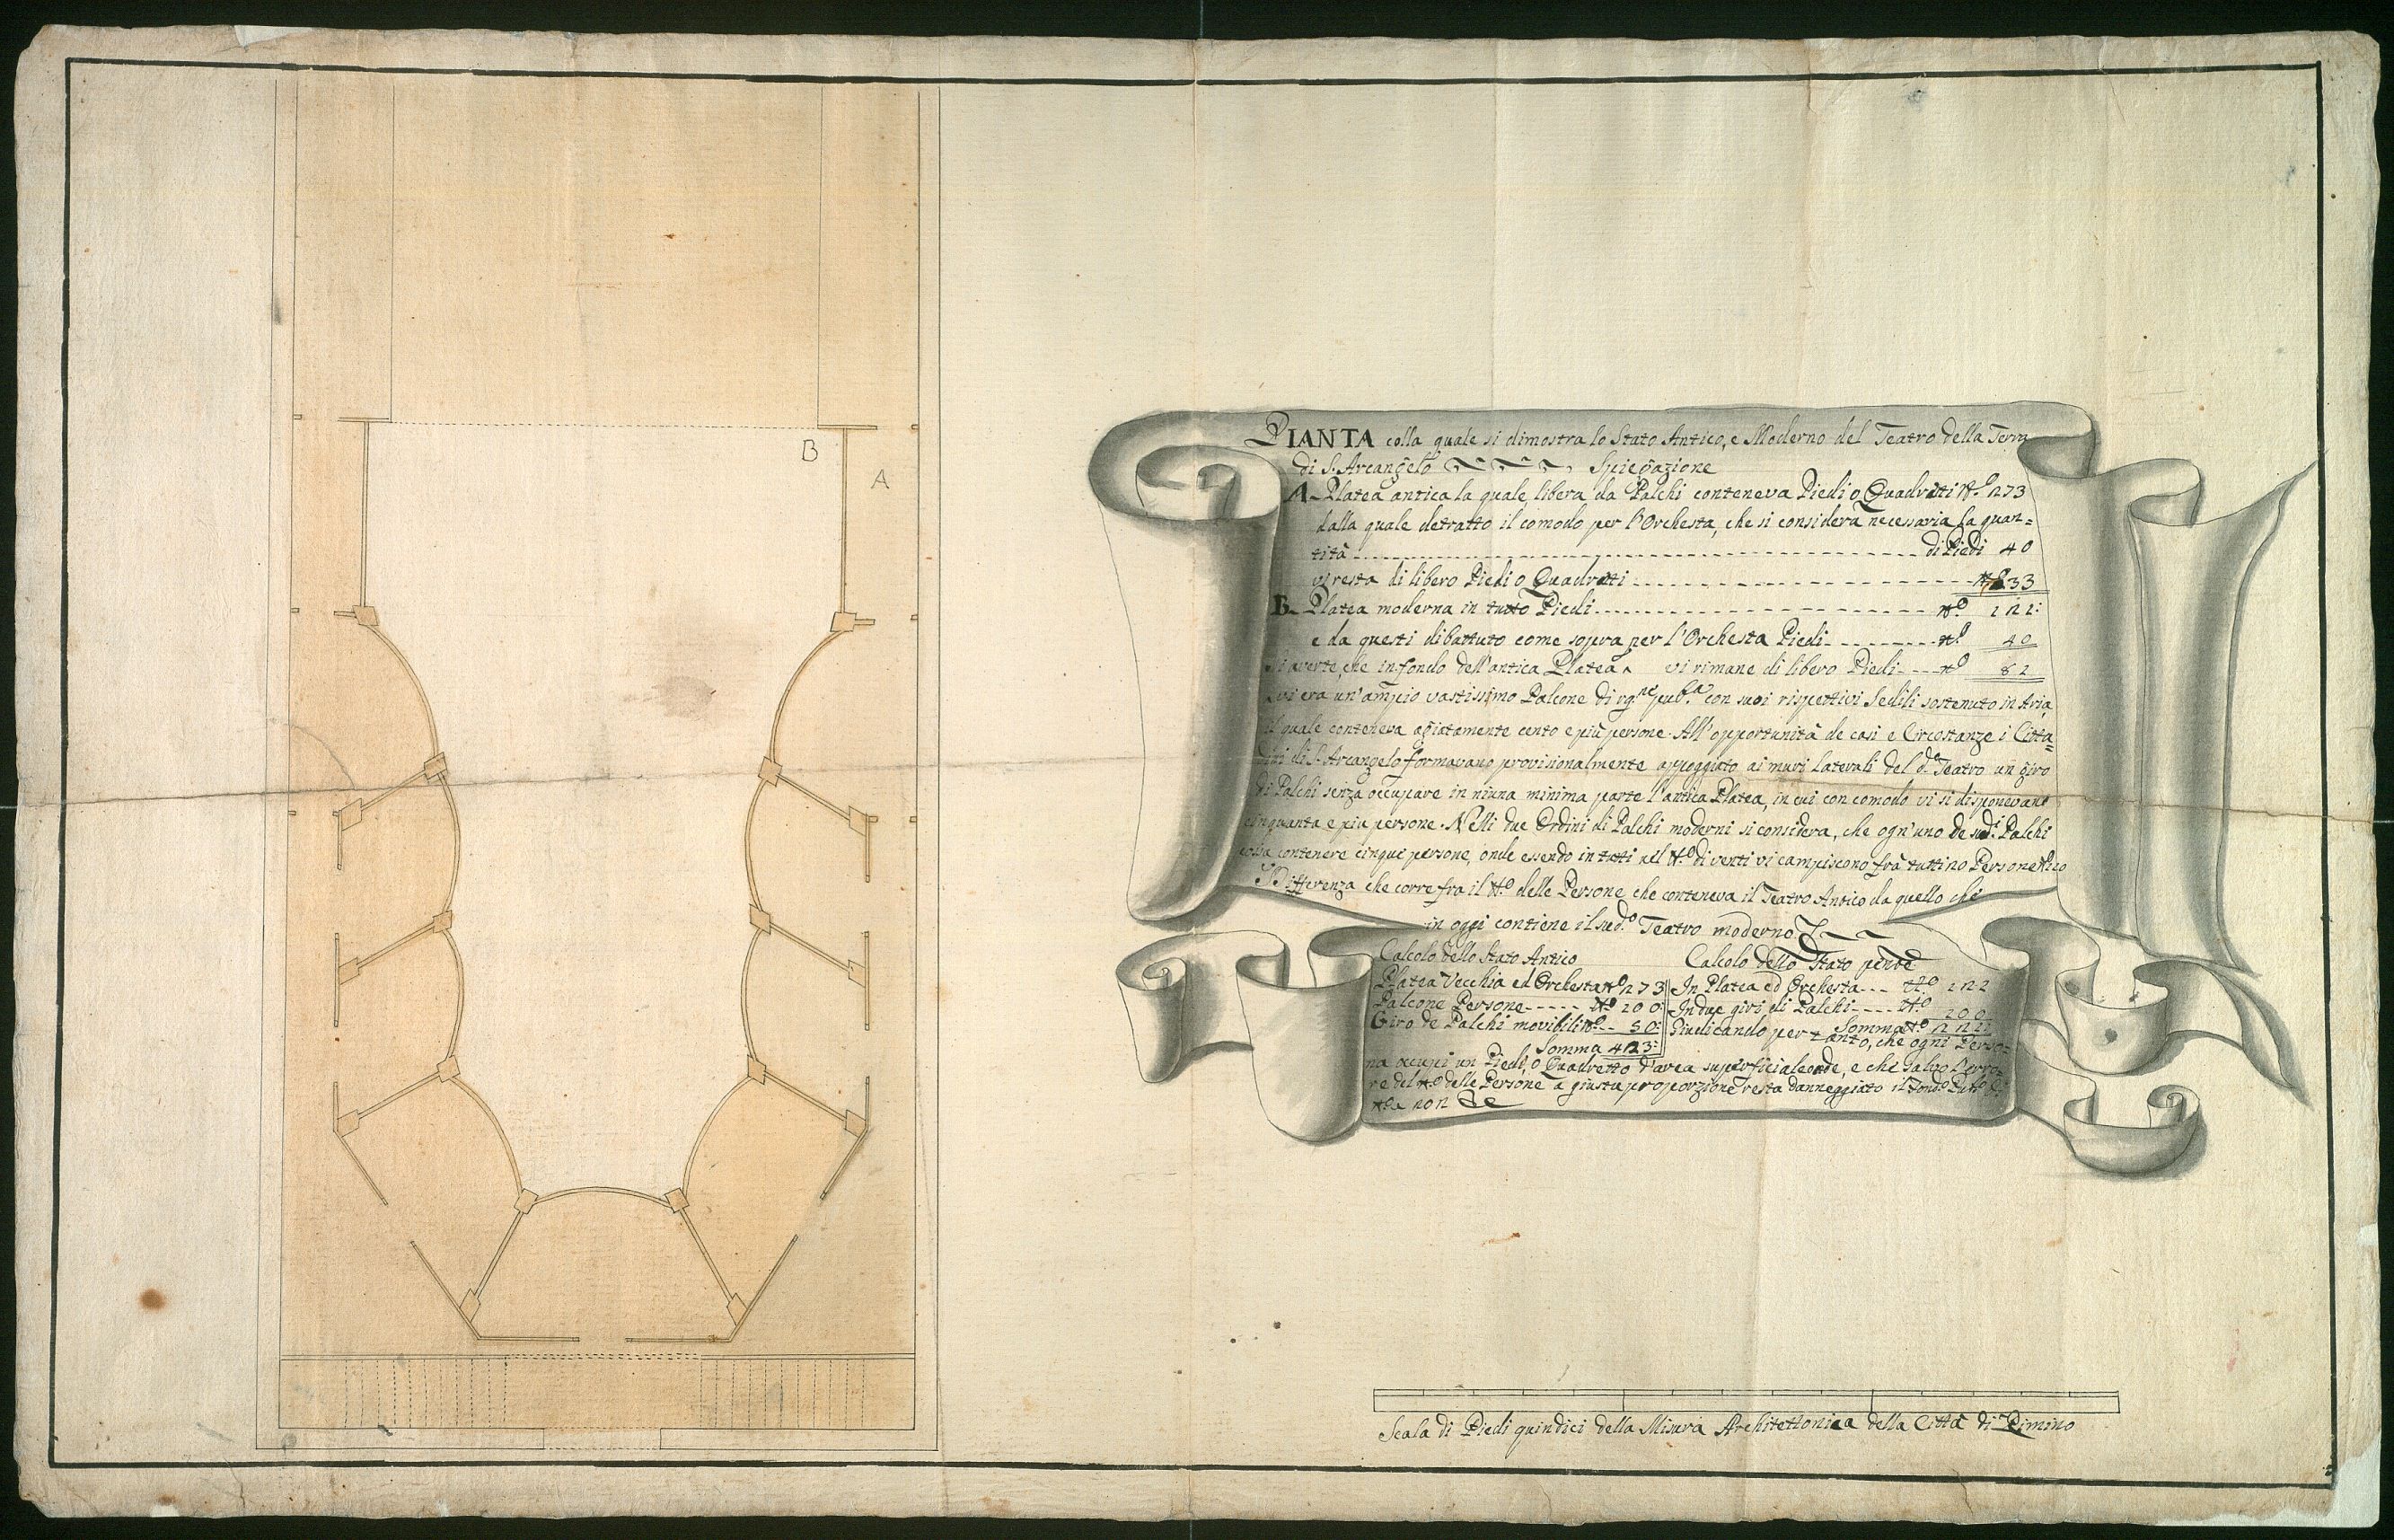 B
A
PIANTA colla quale si dimostra lo Stato Antico, e Moderno del Teatro della Terra
di S. Arcangelo Spiegazione
A- Platea antica la quale libera da Palchi conteneva Piedi o Quadrati N.º 273
dalla quale detratto il comodo per l'Orchesta, che si considera necessaria la quan=
tità di Piedi 40
vi resta di libero Piedi o Quadrati 233
B- Platea moderna in tutto Piedi Nº 122:
e da questi dibattuto come sopra per l'Orchesta Piedi Nº 40
Si averte, che in fondo dell'antica Platea vi rimane di libero Piedi Nº 82
vi era un'ampio vastissimo Palcone di rg.ne pub.ca con suoi rispettivi Sedili sostenuto in Aria,
il quale conteneva agiatamente cento e più persone. All'opportunità de casi e Circostanze i Citta=
dini di S. Arcangelo formavano provisionalmente appoggiato ai muri laterali del d.º Teatro un giro
di Palchi senza occupare in niuna minima parte l'antica Platea, in cui con comodo vi si disponevano
cinquanta e più persone. Nelli due Ordini di Palchi moderni si considera, che ogn'uno de sud.i Palchi
possa contenere cinque persone, onde essendo in tutti nel Nº di venti vi campiscono frà tutti no Persone Nº 100
Differenza che corre fra il Nº delle Persone che conteneva il Teatro Antico da quello che
in oggi contiene il sud.º Teatro moderno
Calcolo dello Stato Antico
Platea Vecchia ed Orchesta Nº 273
Palcone Persone Nº 100:
Giro de Palchi movibili Nº 50:
Somma 423:
Calcolo dello Stato p͠nte
In Platea ed Orchesta Nº 122
In due giri di Palchi Nº 100
Somma Nº 222:
Giudicando per tanto, che ogni Perso=
na occupi un Piede, o Quadretto d'area superficiale onde, e che salvo l'erro=
re del Nº delle Persone a giusta proporzione resta danneggiato il
Nº 201
Scala di Piedi quindici della Misura Architettonica della Città di Rimino